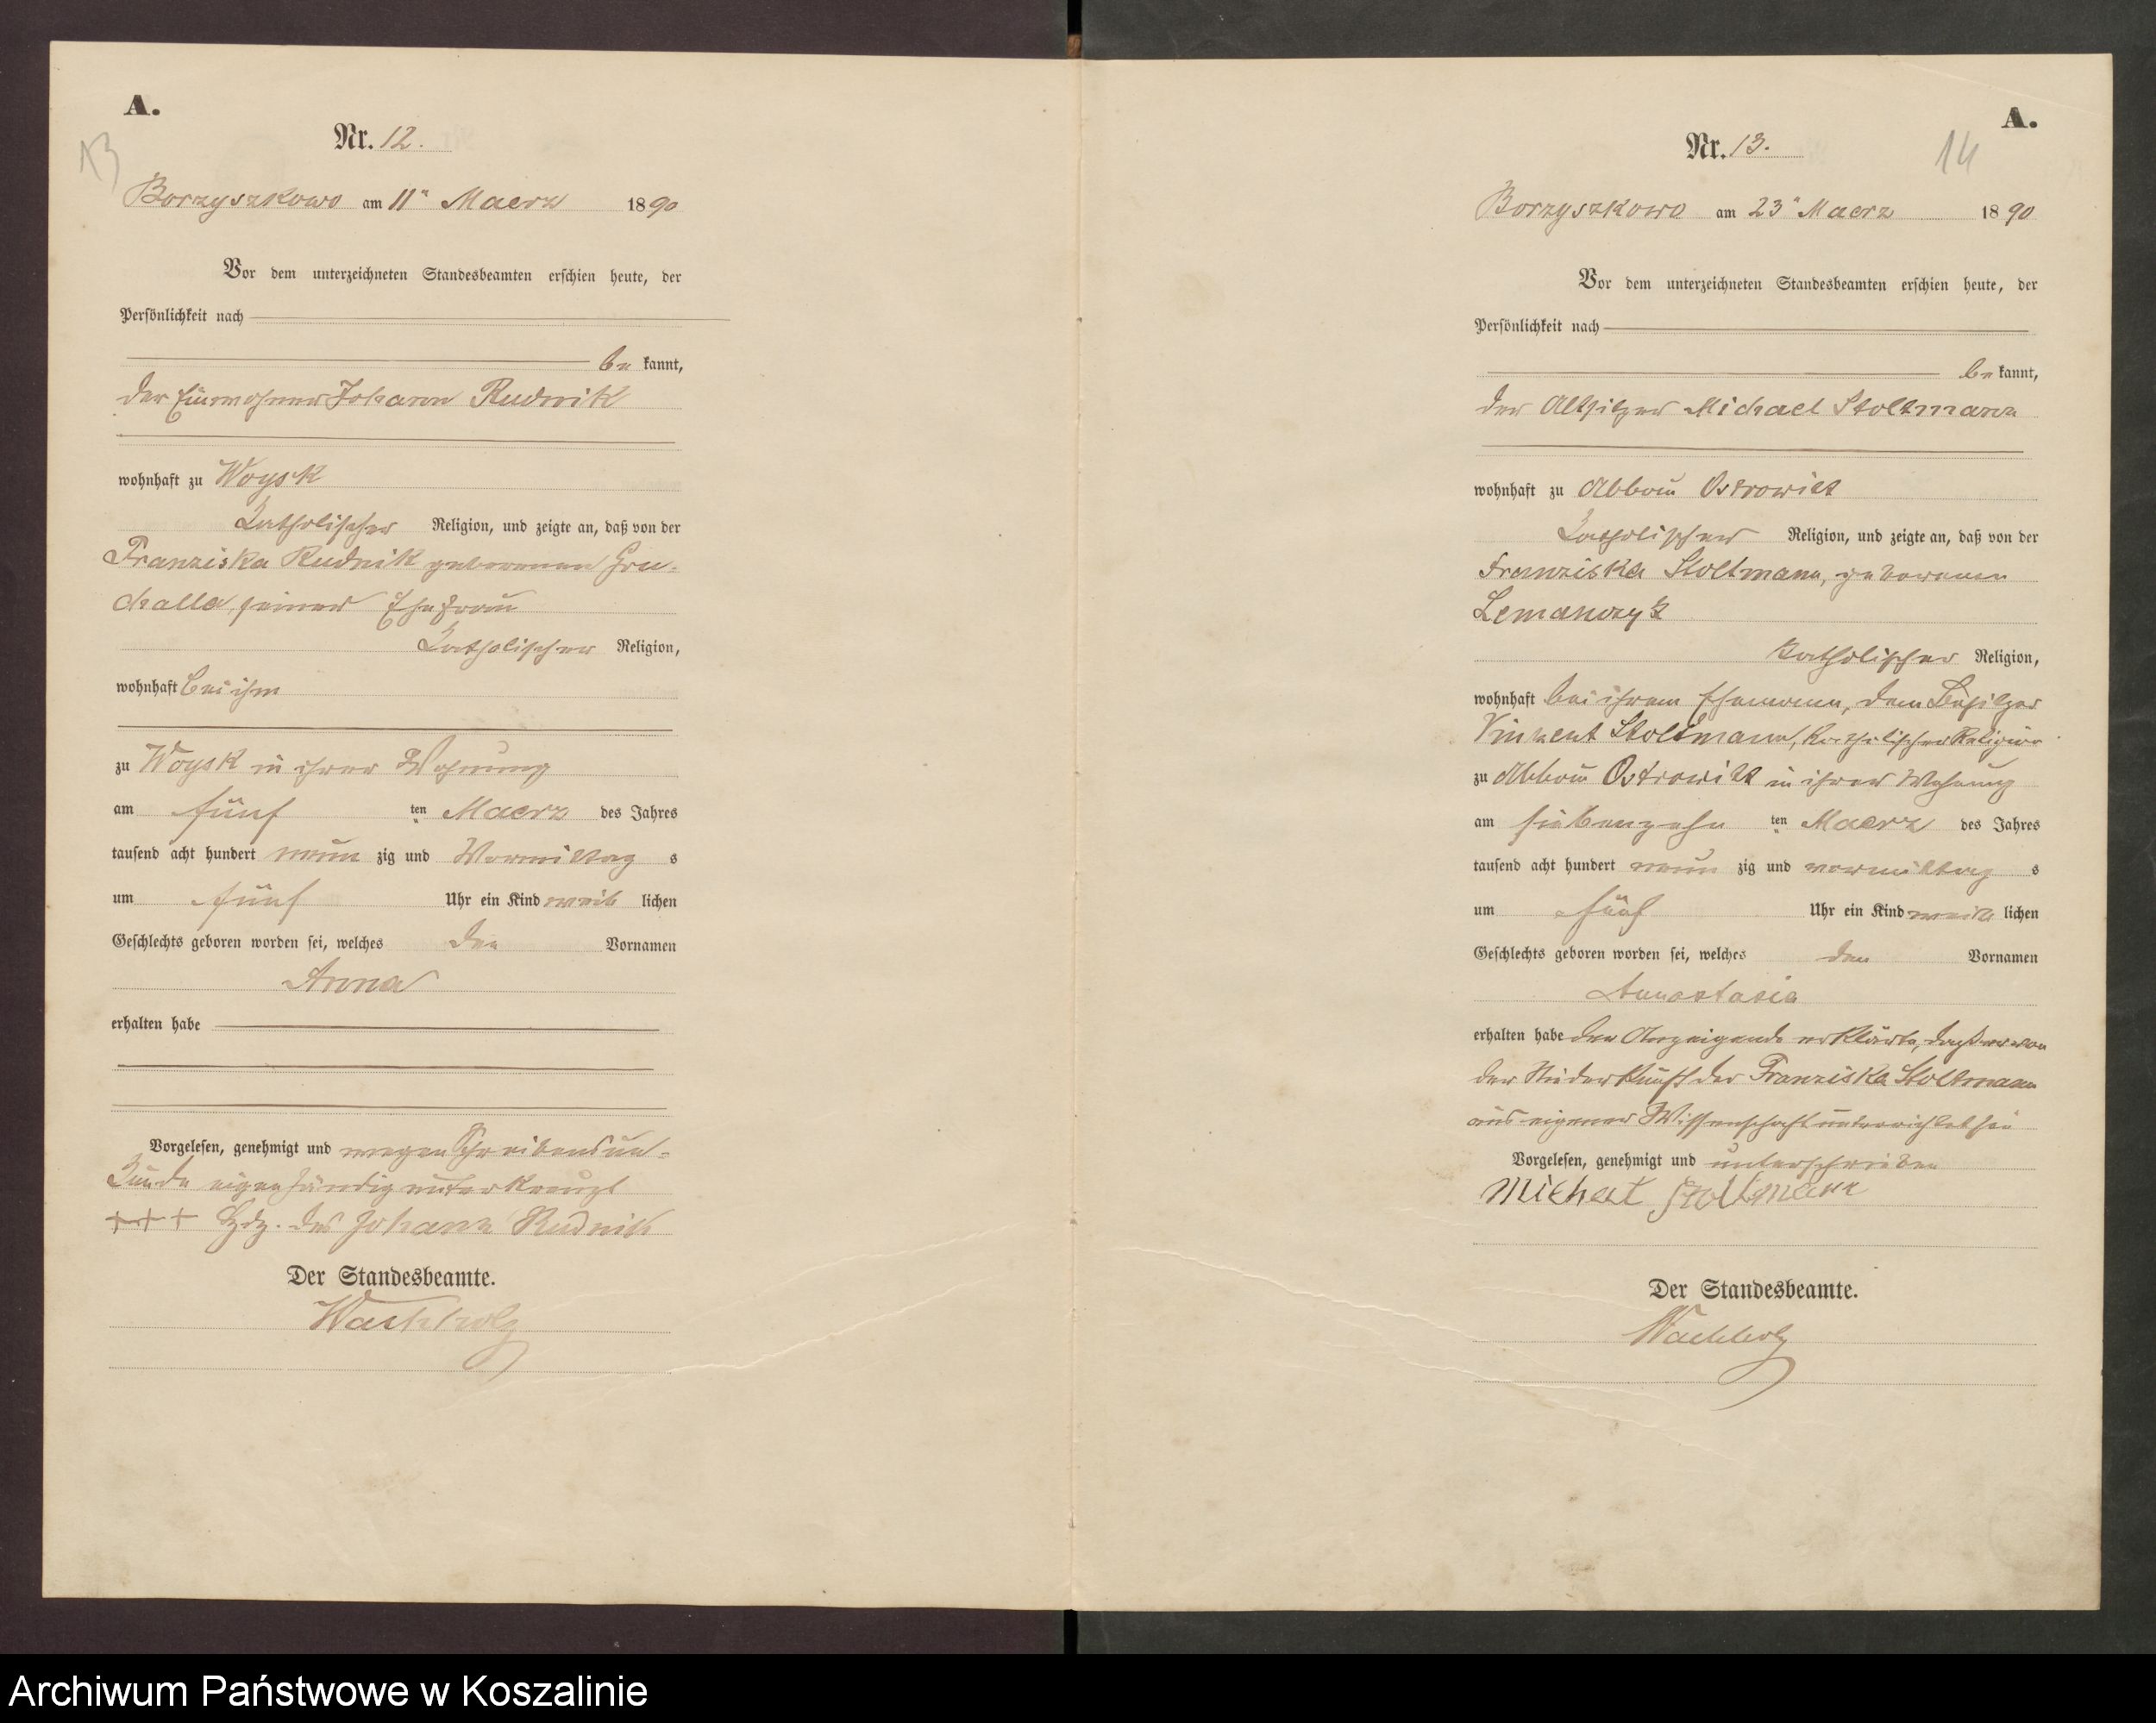 A.
13
Nr. 12.
Borzyszkowo am 11" Maerz 1890
Vor dem unterzeichneten Standesbeamten erschien heute, der
Persönlichkeit nach
be kannt,
der Einwohner Johann Rudnik
wohnhaft zu Woysk
Katholischer Religion, und zeigte an, daß von der
Franziska Rudnik geborenen Gru-
challa, seiner Ehefrau
Katholischer Religion,
wohnhaft bei ihm
zu Woysk in ihrer Wohnung
am fünf ten Maerz des Jahres
tausend acht hundert neun zig und Vormittag s
um fünf Uhr ein Kind weib lichen
Geschlechts geboren worden sei, welches den Vornamen
Anna
erhalten habe
Vorgelesen, genehmigt und wegen Schreibensun-
kunde eigenhändig unterkreuzt
+++ Hdz. des Johann Rudnik
Der Standesbeamte.
Wachholz
A.
14
Nr. 13.
Borzyszkowo am 23" Maerz 1890
Vor dem unterzeichneten Standesbeamten erschien heute, der
Persönlichkeit nach
be kannt,
der Altsitzer Michael Stoltmann
wohnhaft zu Abbau Ostrowitt
Katholischer Religion, und zeigte an, daß von der
Franziska Stoltmann, geborenen
Lemanczyk
Katholischer Religion,
wohnhaft bei ihrem Ehemann, dem Besitzer
Vinzent Stoltmann, Katholischer Religion
zu Abbau Ostrowitt in ihrer Wohnung
am siebenzehn ten Maerz des Jahres
tausend acht hundert neun zig und vormittag s
um fünf Uhr ein Kind weib lichen
Geschlechts geboren worden sei, welches den Vornamen
Annastasia
erhalten habe der Anzeigende erklärte, daß er von
der Niederkunft der Franziska Stoltmann
aus eigener Wissenschaft unterrichtet sei
Vorgelesen, genehmigt und unterschrieben
Michael Stoltmann
Der Standesbeamte.
Wachholz
Archiwum Państwowe w Koszalinie